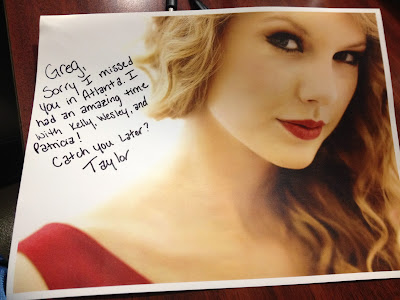 Greg,
Sorry I missed
you in Atlanta. I
had an amazing time
with Kelly, Wesley, and
Patricia!
Catch you later?
Taylor